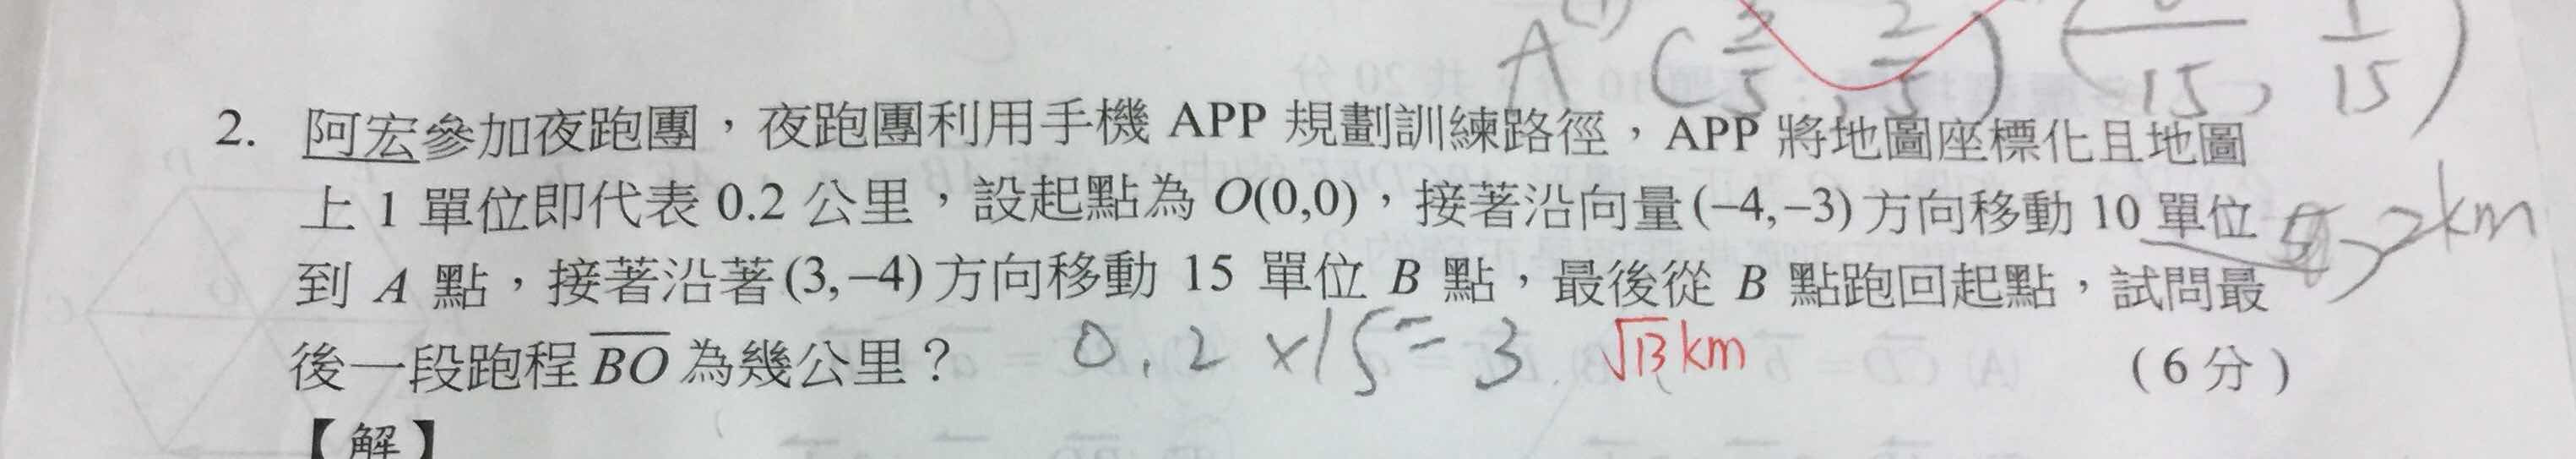 A (2/5, 2/5) ( /15, 1/15)
2. 阿宏參加夜跑團,夜跑團利用手機 APP 規劃訓練路徑,APP 將地圖座標化且地圖
上 1 單位即代表 0.2 公里,設起點為 O(0,0),接著沿向量(−4,−3)方向移動 10 單位
2km
到 A 點,接著沿著(3,−4)方向移動 15 單位 B 點,最後從 B 點跑回起點,試問最
後一段跑程 BO 為幾公里? 0.2×15=3 √13 km (6 分)
【解】